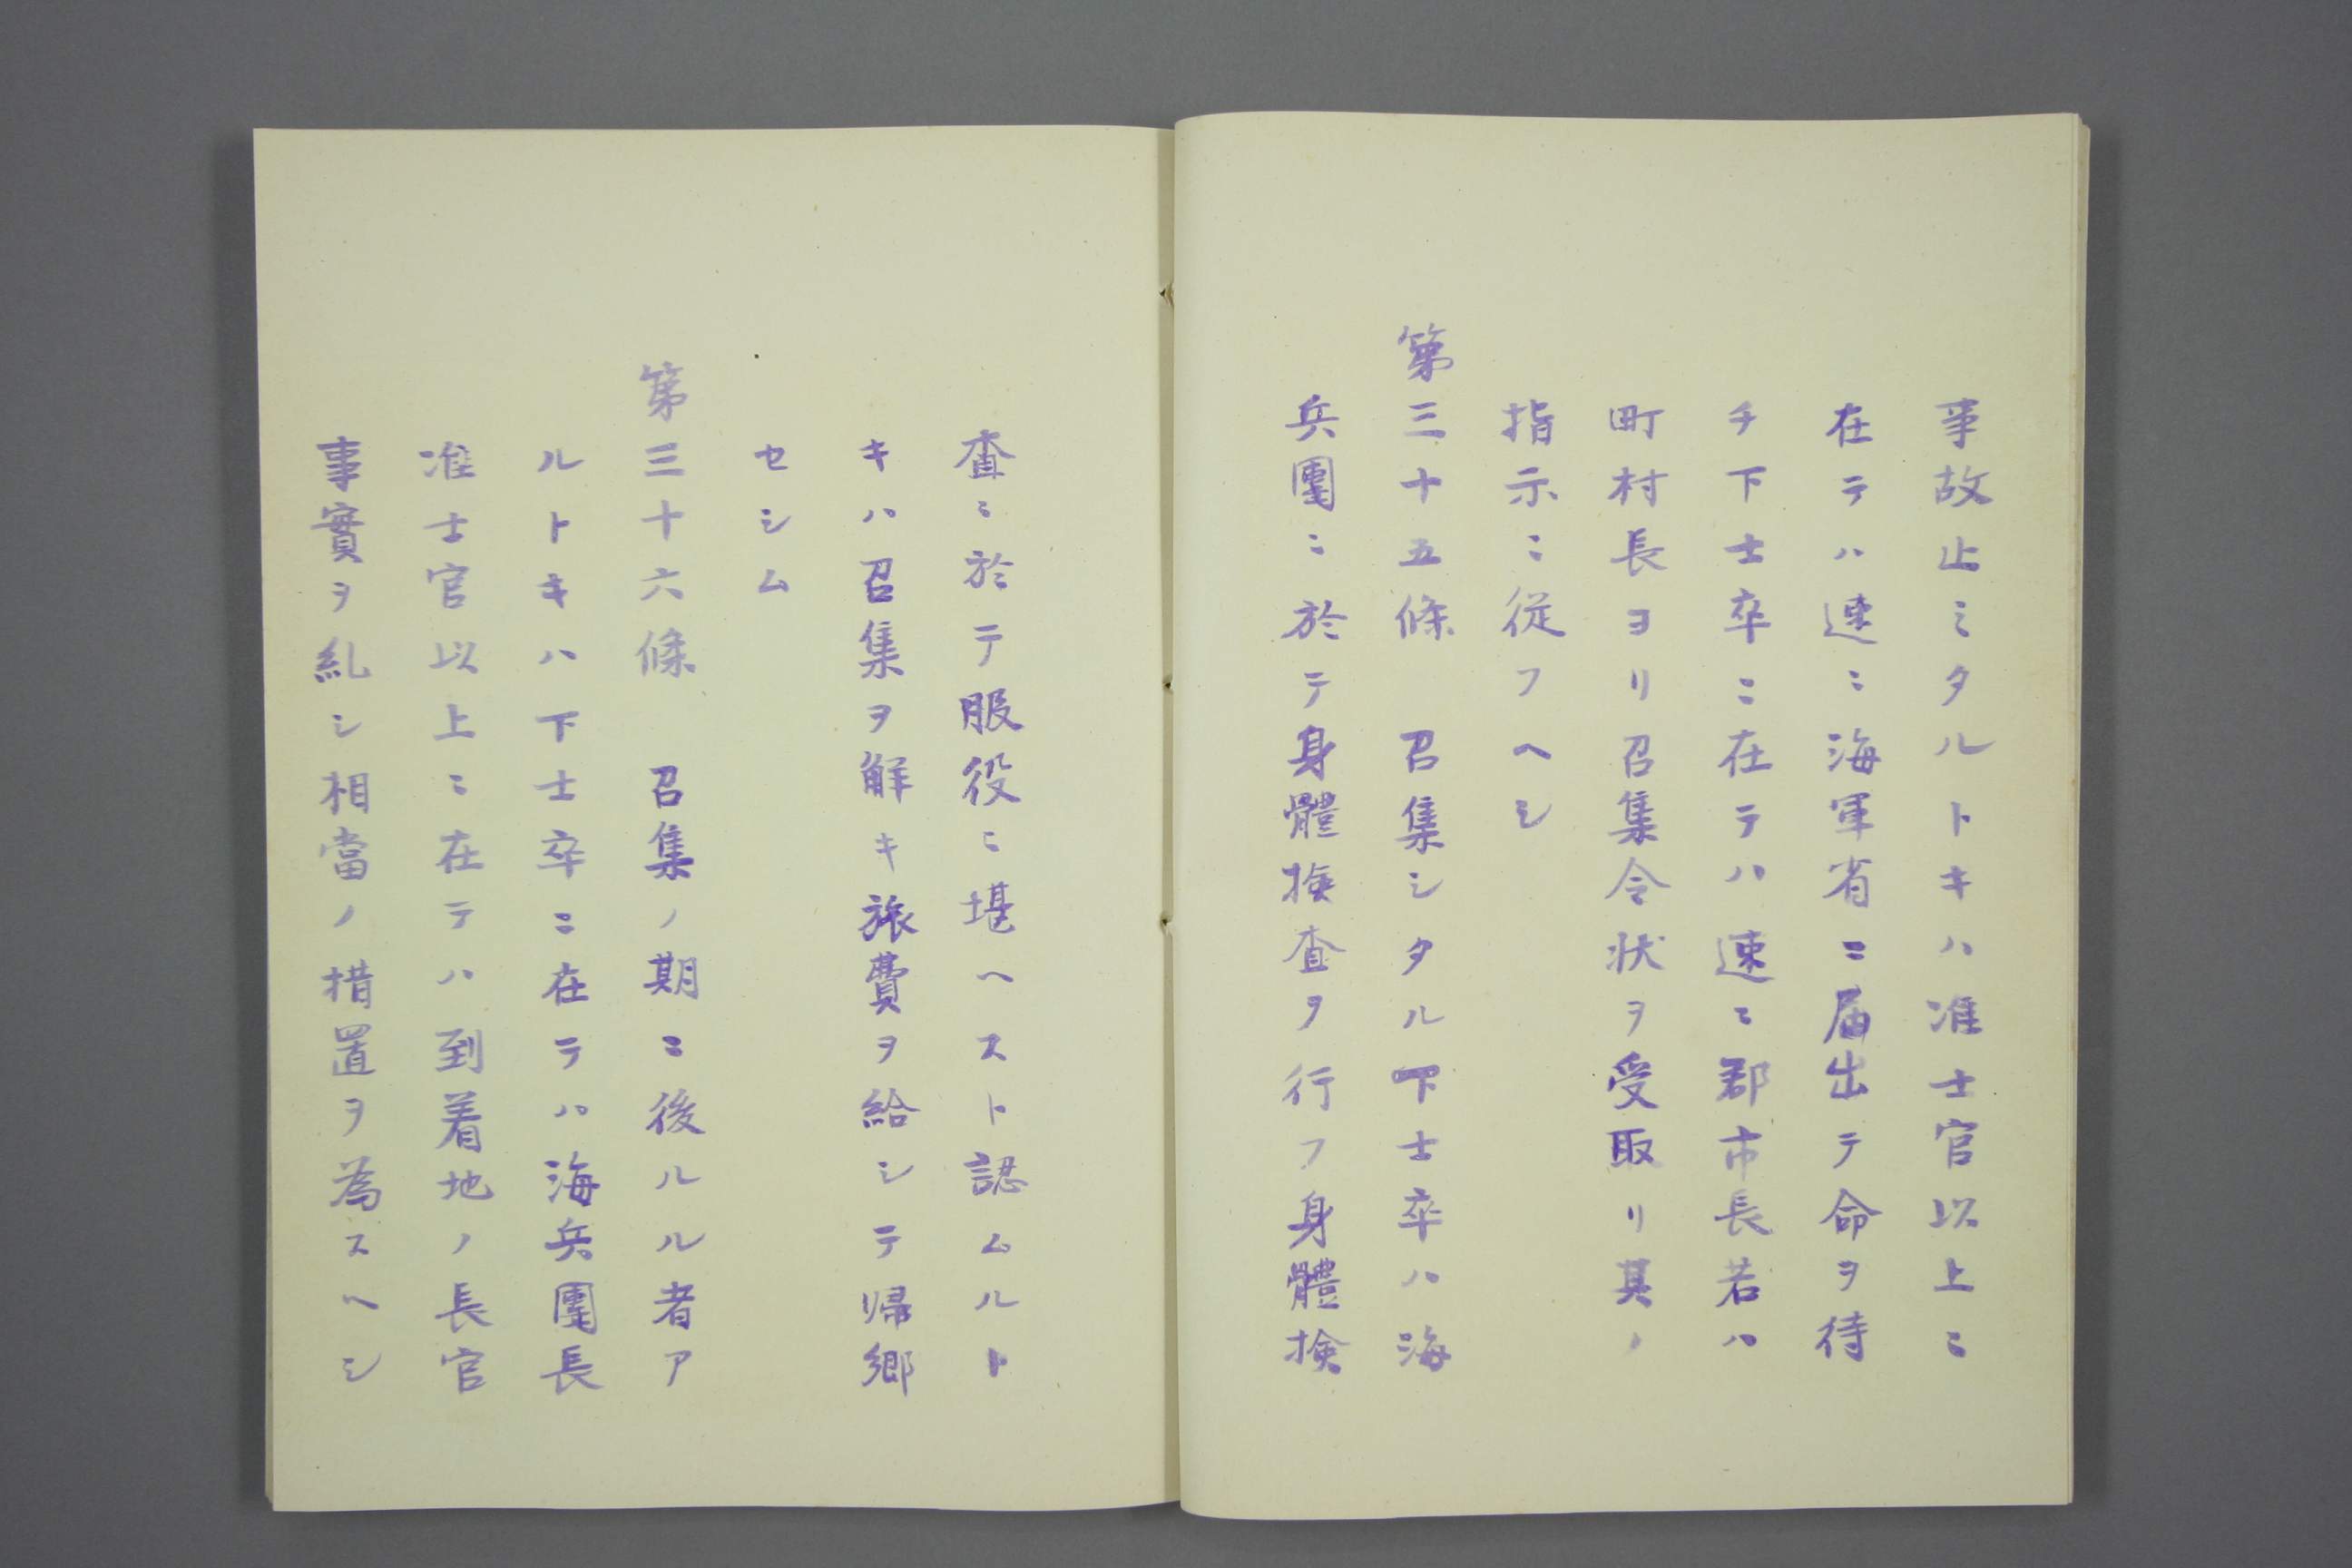 事故止ミタルトキハ准士官以上ニ
在テハ速ニ海軍省ニ届出テ命ヲ待
チ下士卒ニ在テハ速ニ郡市長若ハ
町村長ヨリ召集令状ヲ受取リ其ノ
指示ニ従フヘシ
第三十五條　召集シタル下士卒ハ海
兵團ニ於テ身體検査ヲ行フ身體検
査ニ於テ服役ニ堪ヘスト認ムルト
キハ召集ヲ解キ旅費ヲ給シテ帰郷
セシム
第三十六條　召集ノ期ニ後ルル者ア
ルトキハ下士卒ニ在テハ海兵團長
准士官以上ニ在テハ到着地ノ長官
事實ヲ糺シ相當ノ措置ヲ為スヘシ